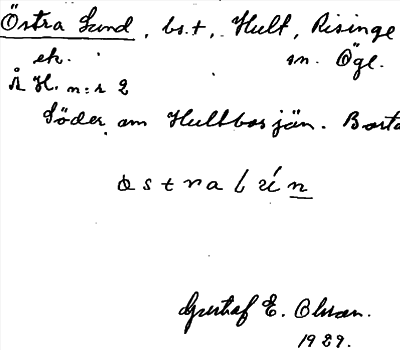 Östra Lund, bs.t, Hult, Risinge
ek. sn. Ögl.
Å H. n:r 2
Söder om Hultbosjön. Borta
Gustaf E. Olsson.
1929.